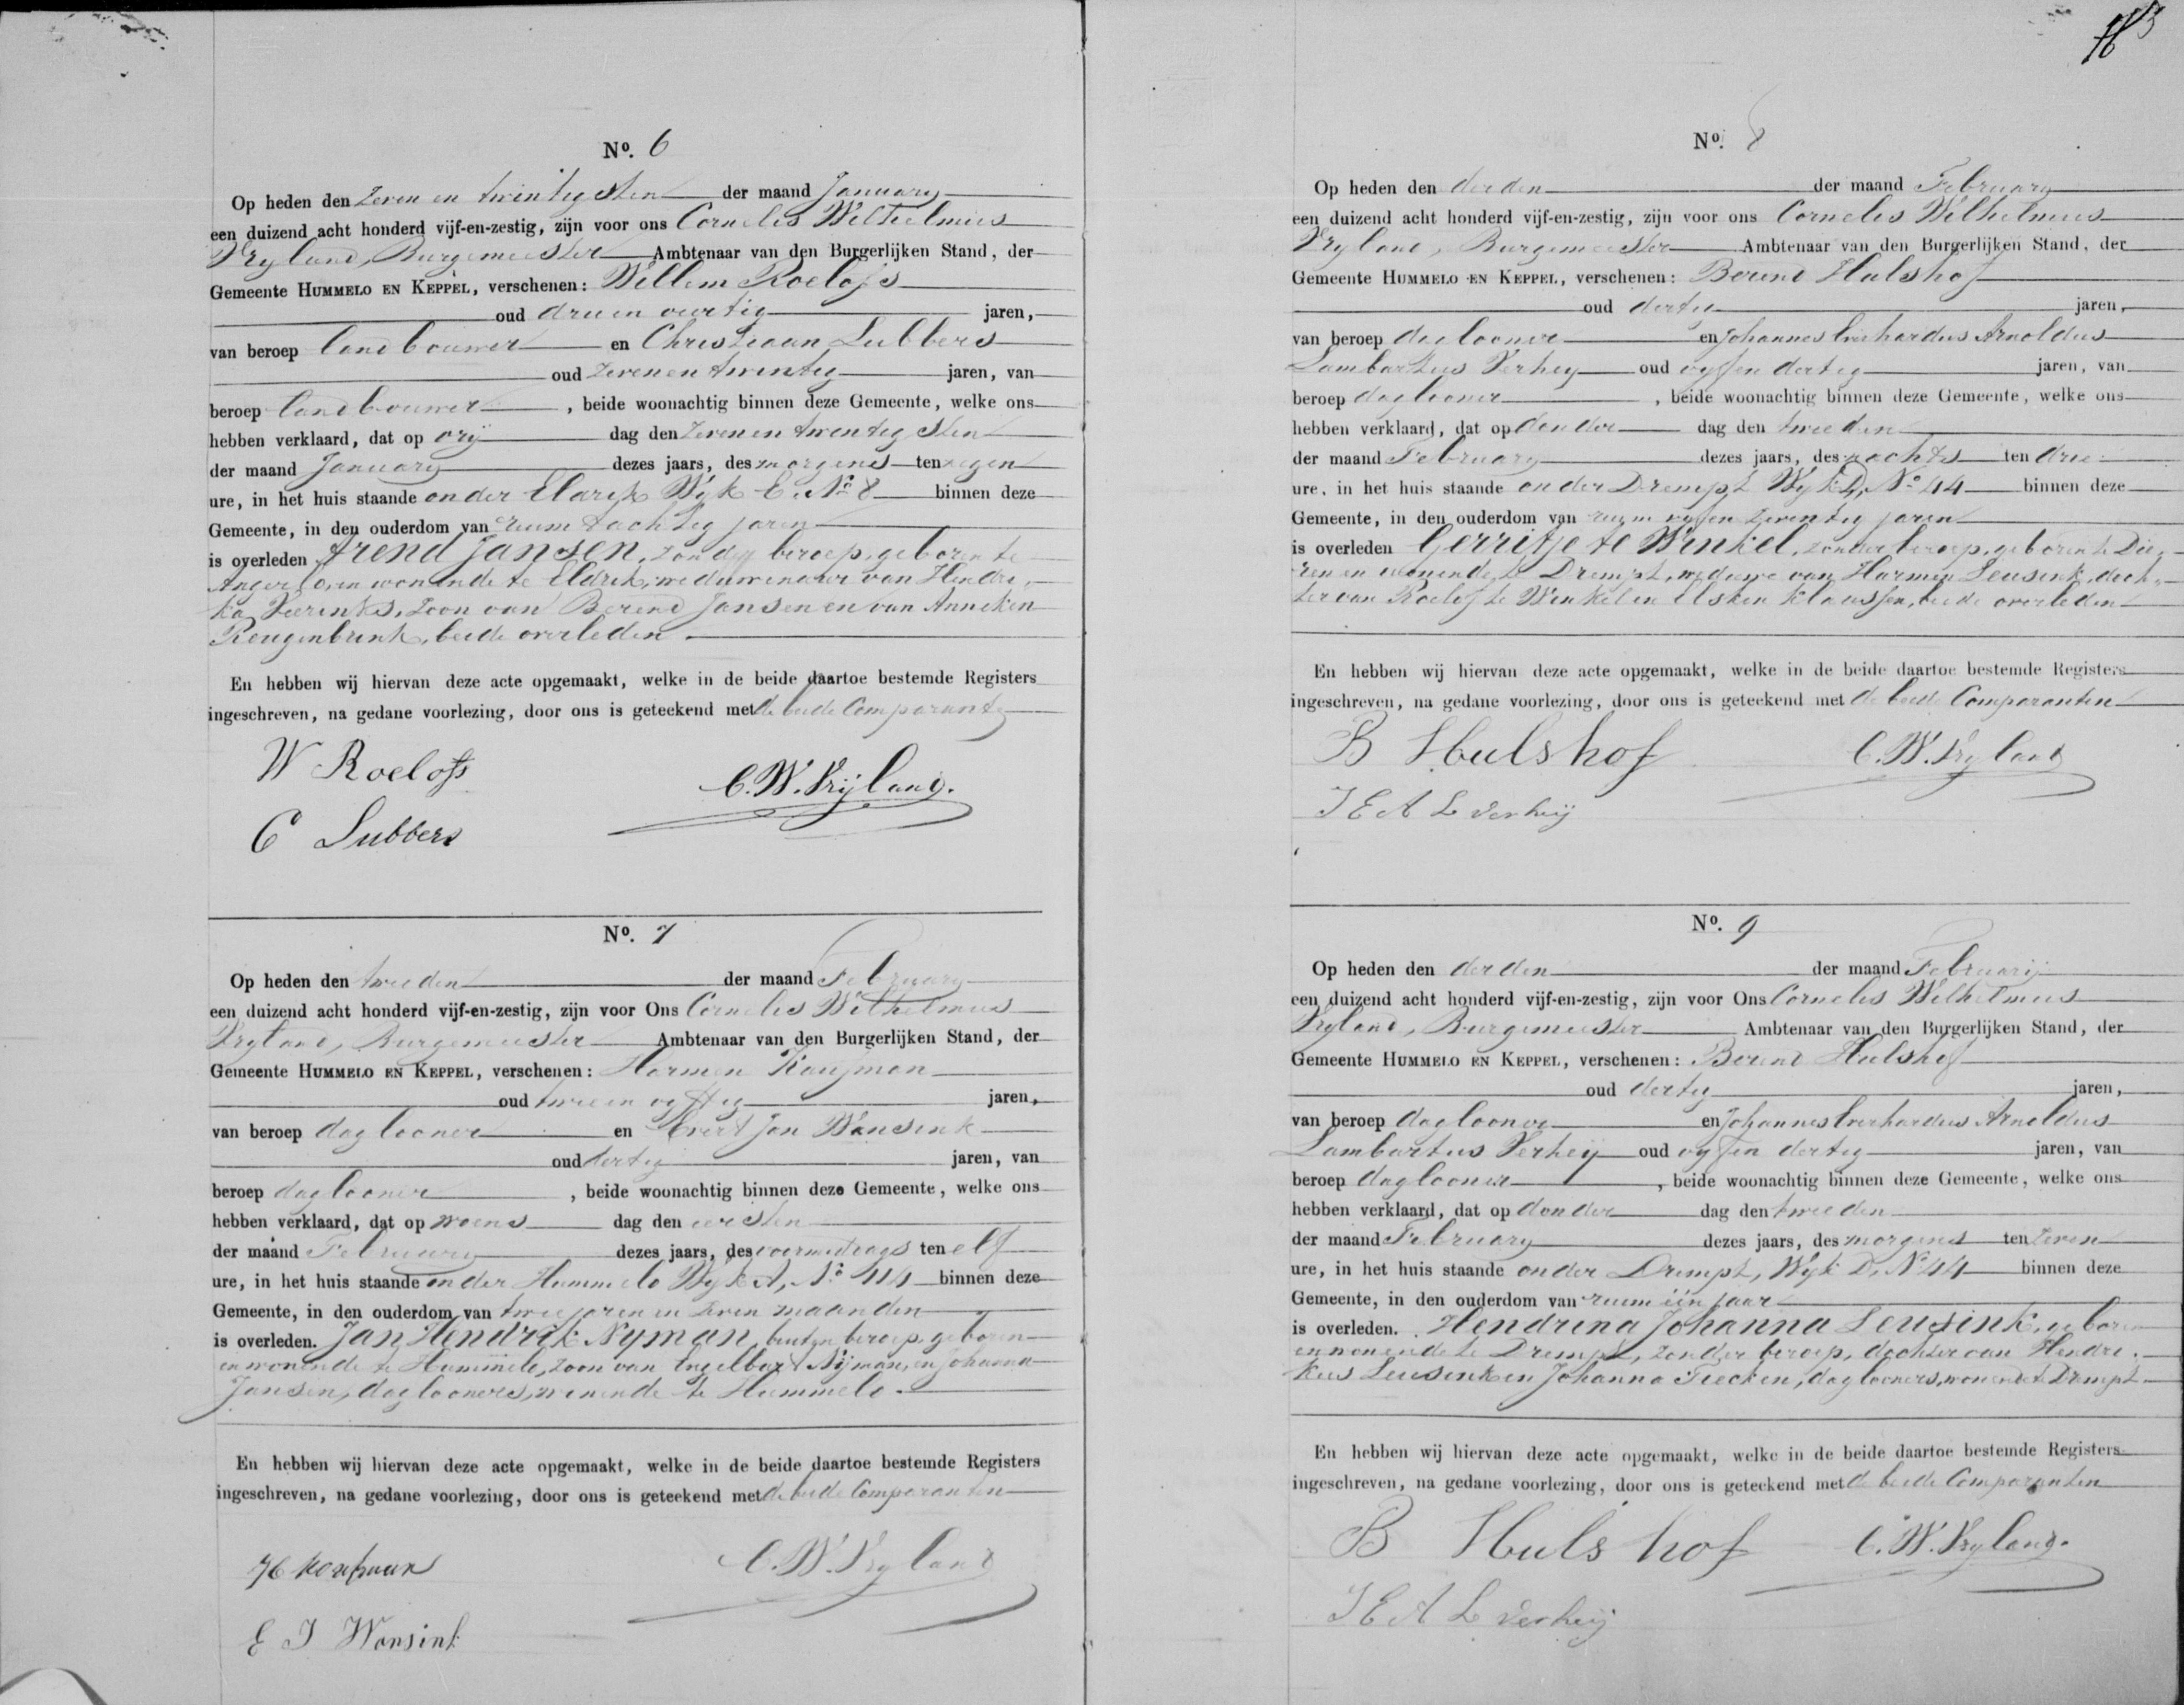 No. 6
Op heden den zeven en twintigsten der maand January
een duizend acht honderd vijf-en-zestig, zijn voor ons Cornelis Wilhelmus
Vryland, Burgemeester Ambtenaar van den Burgerlijken Stand, der
Gemeente HUMMELO EN KEPPEL, verschenen: Willem Roelofs
oud drie en veertig jaren,
van beroep landbouwer en Christiaan Lubbers
oud zeven en twintig jaren, van
beroep landbouwer, beide woonachtig binnen deze Gemeente, welke ons
hebben verklaard, dat op vrij dag den zeven en twintigsten
der maand January dezes jaars, des morgens ten negen
ure, in het huis staande onder Eldrik Wyk E. No 8 binnen deze
Gemeente, in den ouderdom van ruim tachtig jaren
is overleden Arend Jansen, zonder beroep, geboren te
Angerlo, en wonende te Eldrik, weduwenaar van Hendri-
ka, zoon van Berend Jansen en van Anneken
Reugenbrink, beide overleden.
En hebben wij hiervan deze acte opgemaakt, welke in de beide daartoe bestemde Registers
ingeschreven, na gedane voorlezing, door ons is geteekend met de beide Comparanten
W Roelofs
C. W. Vrijland.
C Lubbers
No. 7
Op heden den tweeden der maand February
een duizend acht honderd vijf-en-zestig, zijn voor Ons Cornelis Wilhelmus
Vryland, Burgemeester Ambtenaar van den Burgerlijken Stand, der
Gemeente HUMMELO EN KEPPEL, verschenen: Harmen
oud twee en vyftig jaren,
van beroep daglooner en Evert Jan Wansink
oud dertig jaren, van
beroep daglooner, beide woonachtig binnen deze Gemeente, welke ons
hebben verklaard, dat op woens dag den eersten
der maand February dezes jaars, des voormiddags ten elf
ure, in het huis staande onder Hummelo Wyk A, No 114 binnen deze
Gemeente, in den ouderdom van twee jaren en zeven maanden
is overleden. Jan Hendrik Nyman, buiten beroep, geboren
en wonende te Hummelo, zoon van Engelbart Nijman, en Johanna
Jansen, daglooners, wonende te Hummelo.
En hebben wij hiervan deze acte opgemaakt, welke in de beide daartoe bestemde Registers
ingeschreven, na gedane voorlezing, door ons is geteekend met de beide Comparanten
C. W. Vryland
E J Wansink
No. 8
Op heden den derden der maand February
een duizend acht honderd vijf-en-zestig, zijn voor ons Cornelis Wilhelmus
Vryland, Burgemeester Ambtenaar van den Burgerlijken Stand, der
Gemeente HUMMELO EN KEPPEL, verschenen: Berend Hulshof
oud dertig jaren,
van beroep daglooner en Johannes Everhardus Arnoldus
Lambartus Verhey oud vyf en dertig jaren, van
beroep daglooner, beide woonachtig binnen deze Gemeente, welke ons
hebben verklaard, dat op donder dag den tweeden
der maand February dezes jaars, des nachts ten drie
ure, in het huis staande onder Drempt Wyk D, No 44 binnen deze
Gemeente, in den ouderdom van ruim vyf en zeventig jaren
is overleden Gerritje te Winkel, zonder beroep, geboren te Die-
ren en wonende te Drempt, weduwe van Harmen Leusink, doch-
ter van Roelof te Winkel en Elsken Klaassen, beide overleden
En hebben wij hiervan deze acte opgemaakt, welke in de beide daartoe bestemde Registers
ingeschreven, na gedane voorlezing, door ons is geteekend met de beide Comparanten
B Hulshof
C. W. Vryland
J E A L Verheij
No. 9
Op heden den derden der maand Februarij
een duizend acht honderd vijf-en-zestig, zijn voor Ons Cornelis Wilhelmus
Vryland, Burgemeester Ambtenaar van den Burgerlijken Stand, der
Gemeente HUMMELO EN KEPPEL, verschenen: Berend Hulshof
oud dertig jaren,
van beroep daglooner en Johannes Everhardus Arnoldus
Lambartus Verheij oud vyf en dertig jaren, van
beroep daglooner, beide woonachtig binnen deze Gemeente, welke ons
hebben verklaard, dat op donder dag den tweeden
der maand February dezes jaars, des morgens ten zeven
ure, in het huis staande onder Drempt, Wyk D, No 44 binnen deze
Gemeente, in den ouderdom van ruim één jaar
is overleden. Hendrina Johanna Leusink, geboren
en wonende te Drempt, zonder beroep, dochter van Hendri-
kus Leusink en Johanna Tiecken, daglooners, wonende te Drempt
En hebben wij hiervan deze acte opgemaakt, welke in de beide daartoe bestemde Registers
ingeschreven, na gedane voorlezing, door ons is geteekend met de beide Comparanten
B Hulshof
C. W. Vryland.
J E A L Verheij